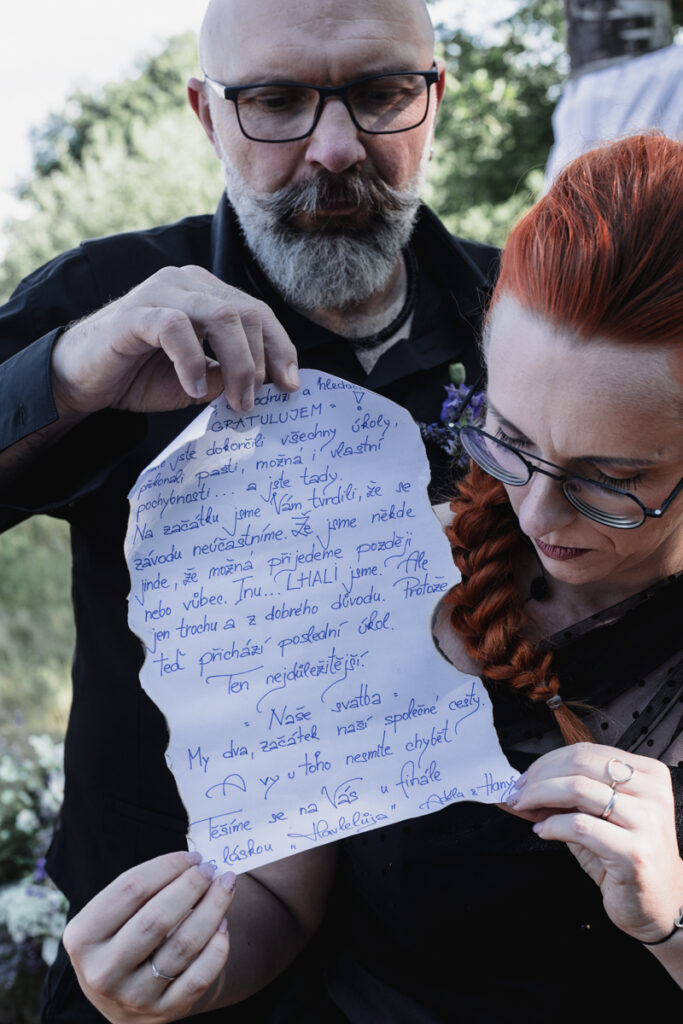 a hledači
GRATULUJEM
jste dokončili všechny úkoly,
překonali pasti, možná i vlastní
pochybnosti... a jste tady.
Na začátku jsme Vám tvrdili, že se
závodu neúčastníme. Že jsme někde
jinde, že možná přijedeme později
nebo vůbec. Inu... LHALI jsme. Ale
jen trochu a z dobrého důvodu. Protože
teď přichází poslední úkol.
Ten nejdůležitější.
"Naše svatba"
My dva, začátek naší společné cesty.
A vy u toho nesmíte chybět
Těšíme se na Vás u finále
s láskou